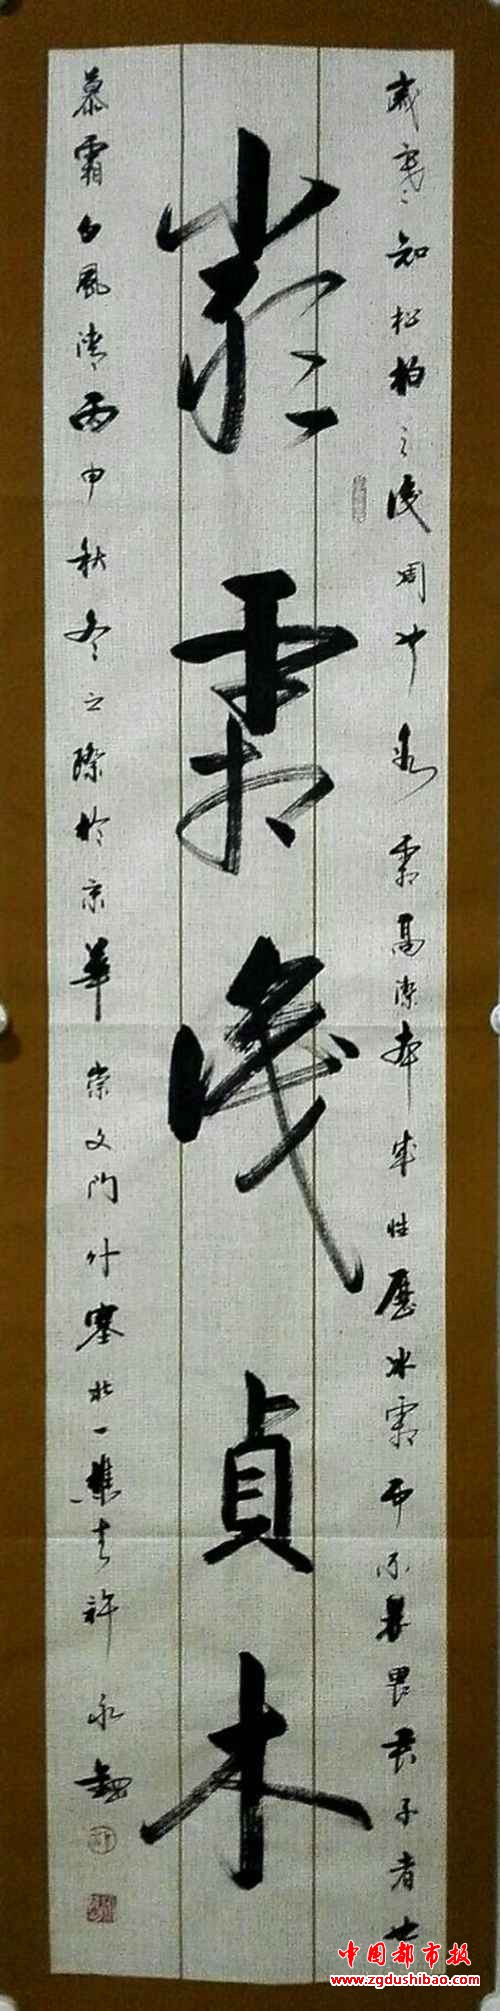 歲寒知松柏之後周 霜高潔 性歷冰霜而不畏君子者也
嚴霜識貞木
慕霜白風清丙申秋冬之際於京華崇文門外塞北一樵夫許永
中国都市报
www.zgdushibao.com